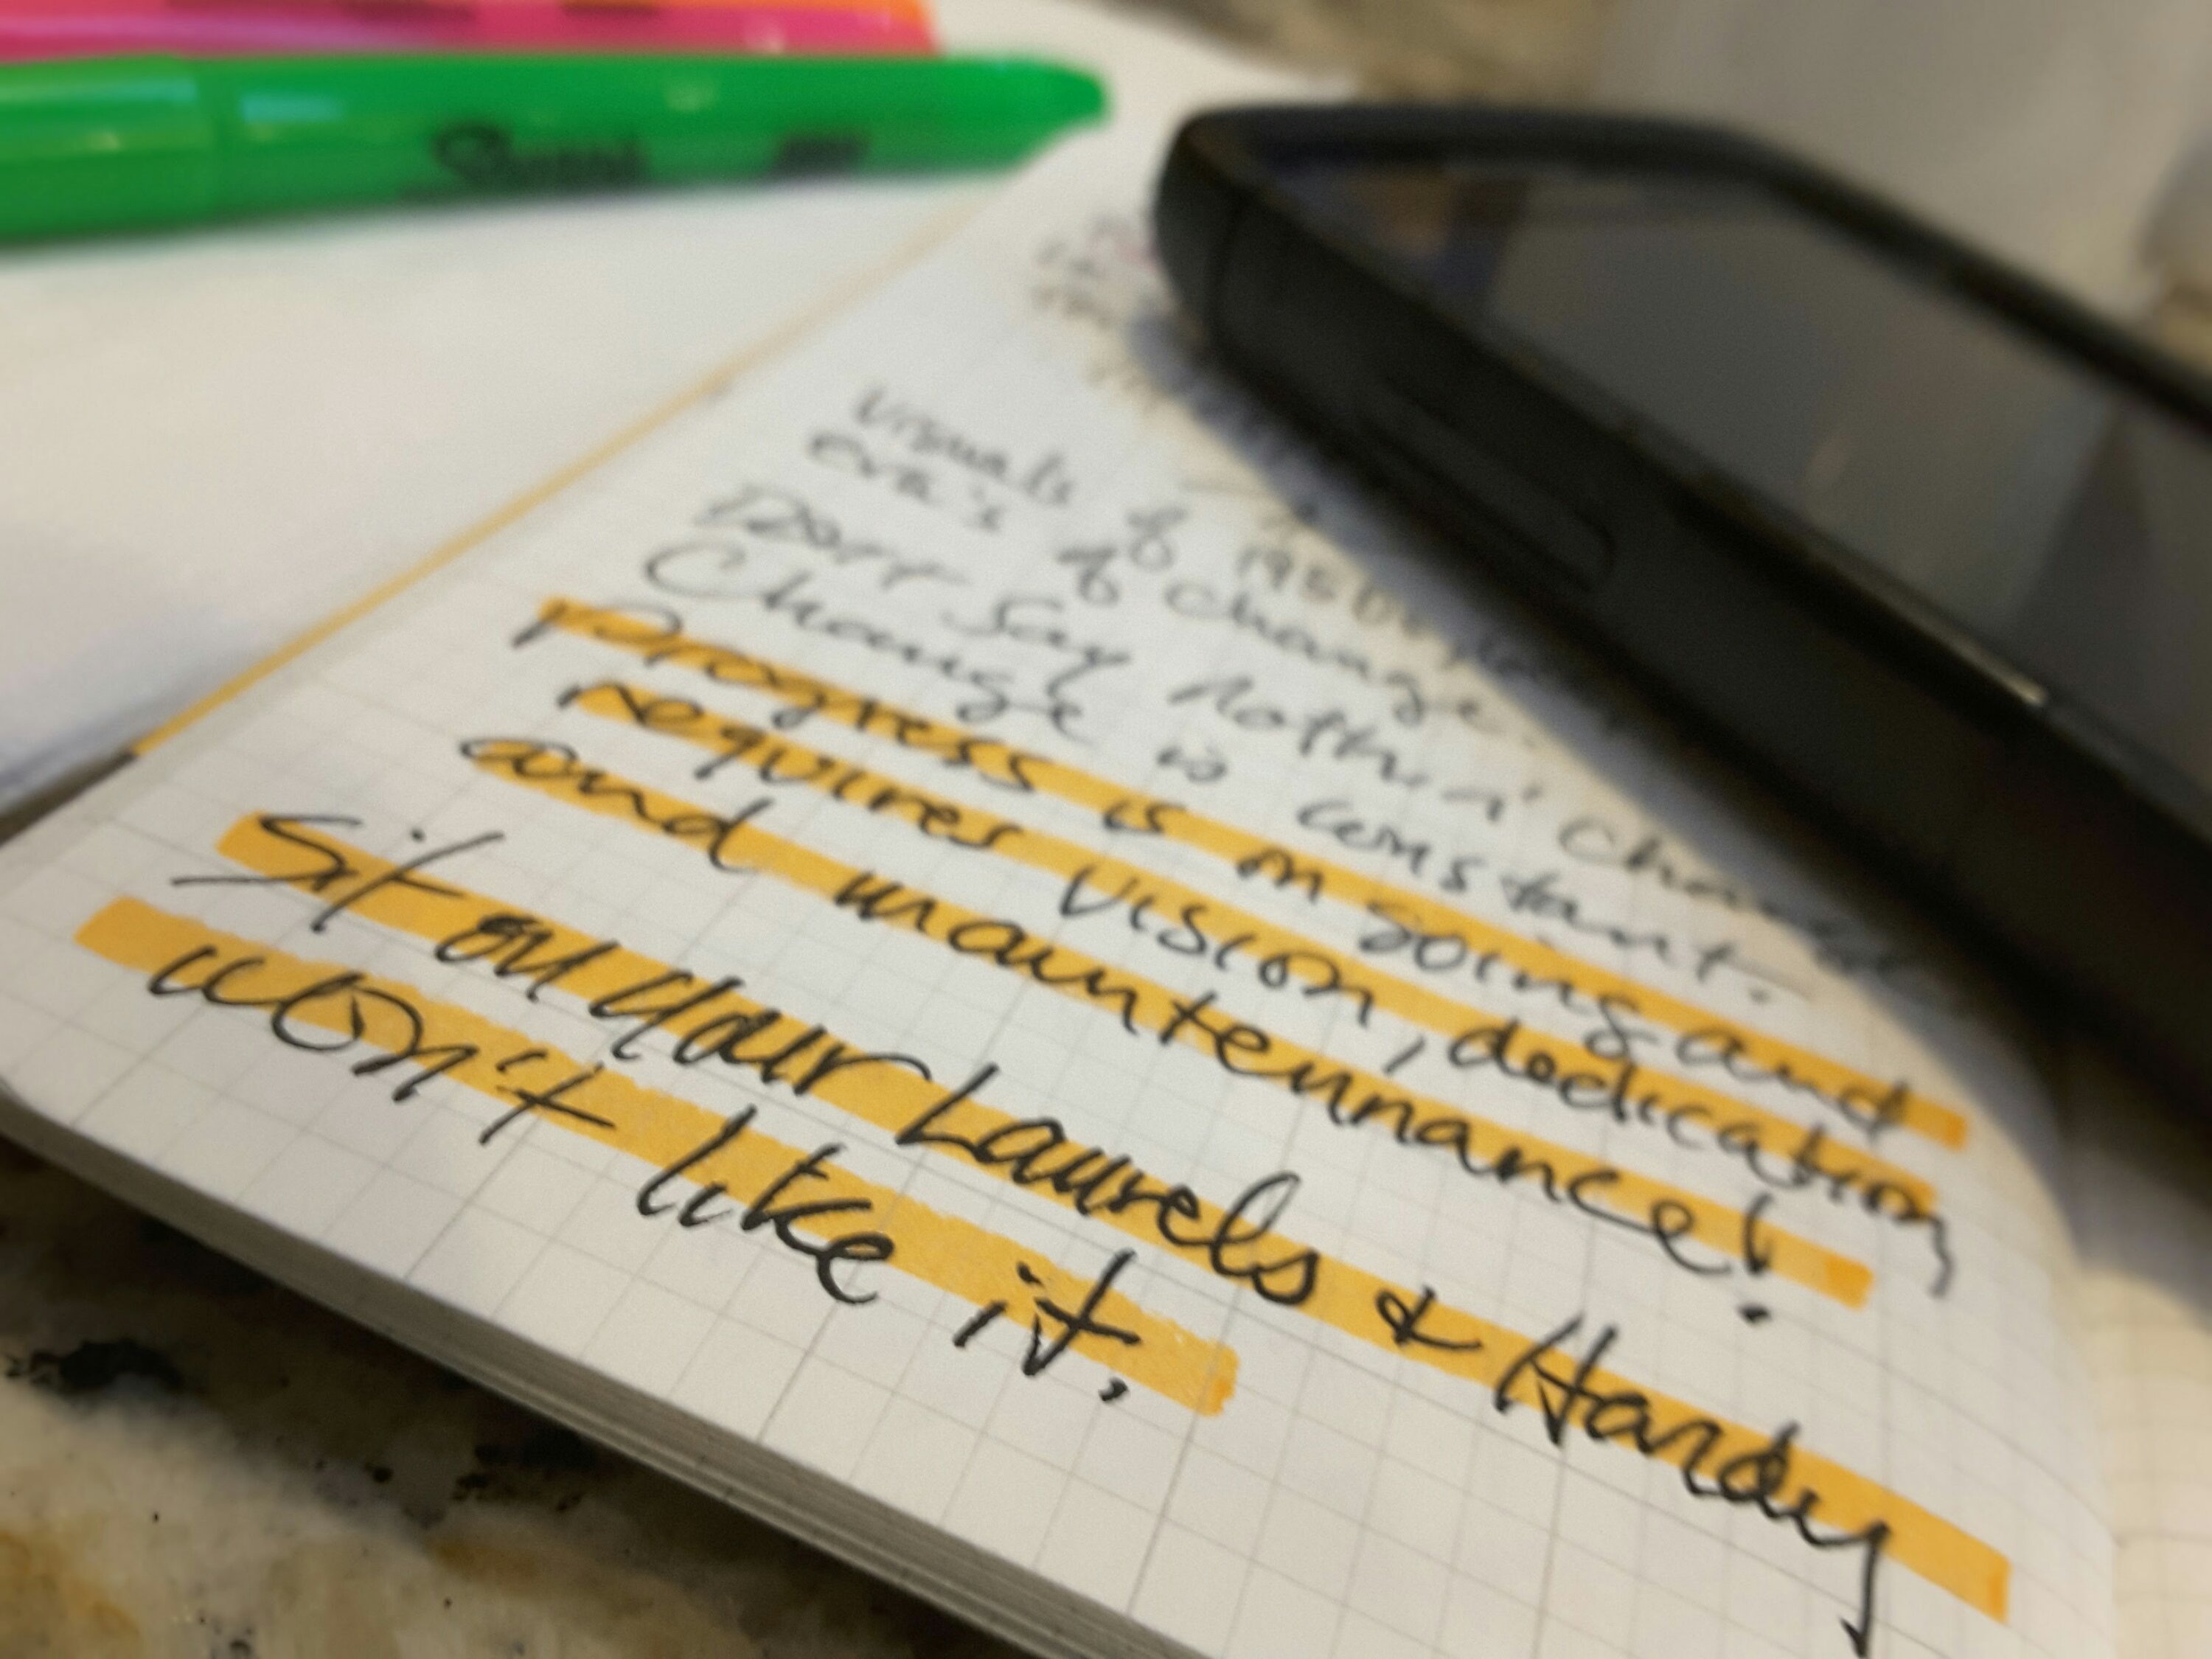 Sharpie
visuals of 1950's
era's of change.
Don't say nothin' changes
Change is constant.
Progress is ongoing and
requires vision, dedication,
and maintennance!
Sit on your Laurels & Hardy
won't like it.